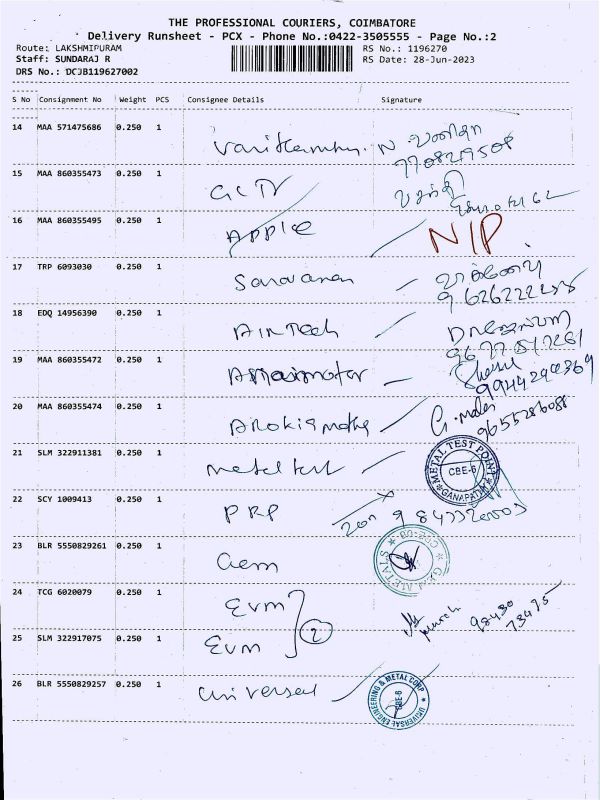 THE PROFESSIONAL COURIERS, COIMBATORE
Delivery Runsheet - PCX - Phone No.:0422-3505555 - Page No.:2
Route: LAKSHMIPURAM RS No.: 1196270
Staff: SUNDARAJ R RS Date: 28-Jun-2023
DRS No.: DCJB119627002
S No Consignment No Weight PCS Consignee Details Signature
14 MAA 571475686 0.250 1
7708219508
15 MAA 860355473 0.250 1 GCTV
16 MAA 860355495 0.250 1 APPLE N/P
17 TRP 6093030 0.250 1 Saravanan
18 EDQ 14956390 0.250 1 AIRTECH
19 MAA 860355472 0.250 1
9944290369
20 MAA 860355474 0.250 1
9655286088
21 SLM 322911381 0.250 1 metel test METAL TEST POINT CBE-6 GANAPATHY
22 SCY 1009413 0.250 1 PRP
23 BLR 5550829261 0.250 1 Gem
24 TCG 6020079 0.250 1 EVM
98430
73495
25 SLM 322917075 0.250 1 EVM 2
26 BLR 5550829257 0.250 1 universal UNIVERSAL ENGINEERING & METAL CORP CBE-6